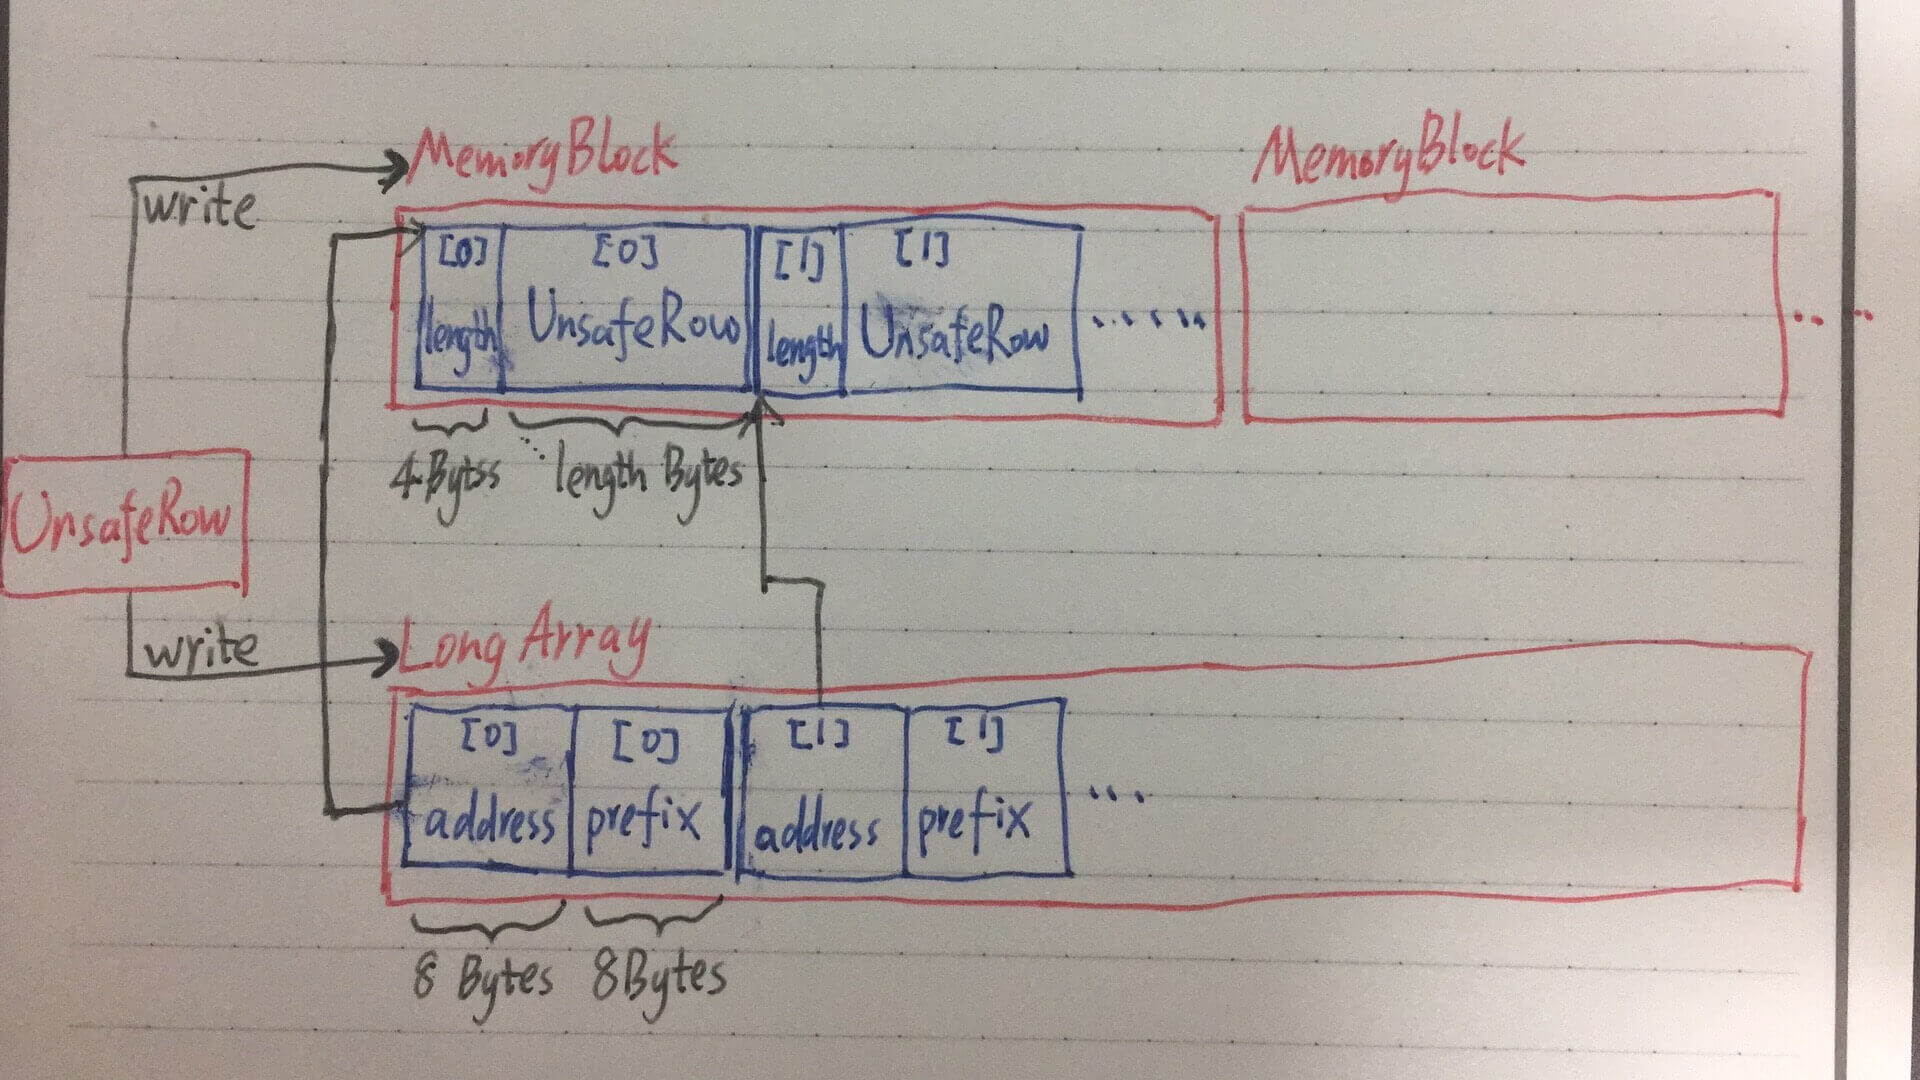 MemoryBlock MemoryBlock
write
[0] [0] [1] [1]
length UnsafeRow length UnsafeRow ......
4 Bytss length Bytes
UnsafeRow
write
Long Array
[0] [0] [1] [1]
address prefix address prefix ...
8 Bytes 8Bytes